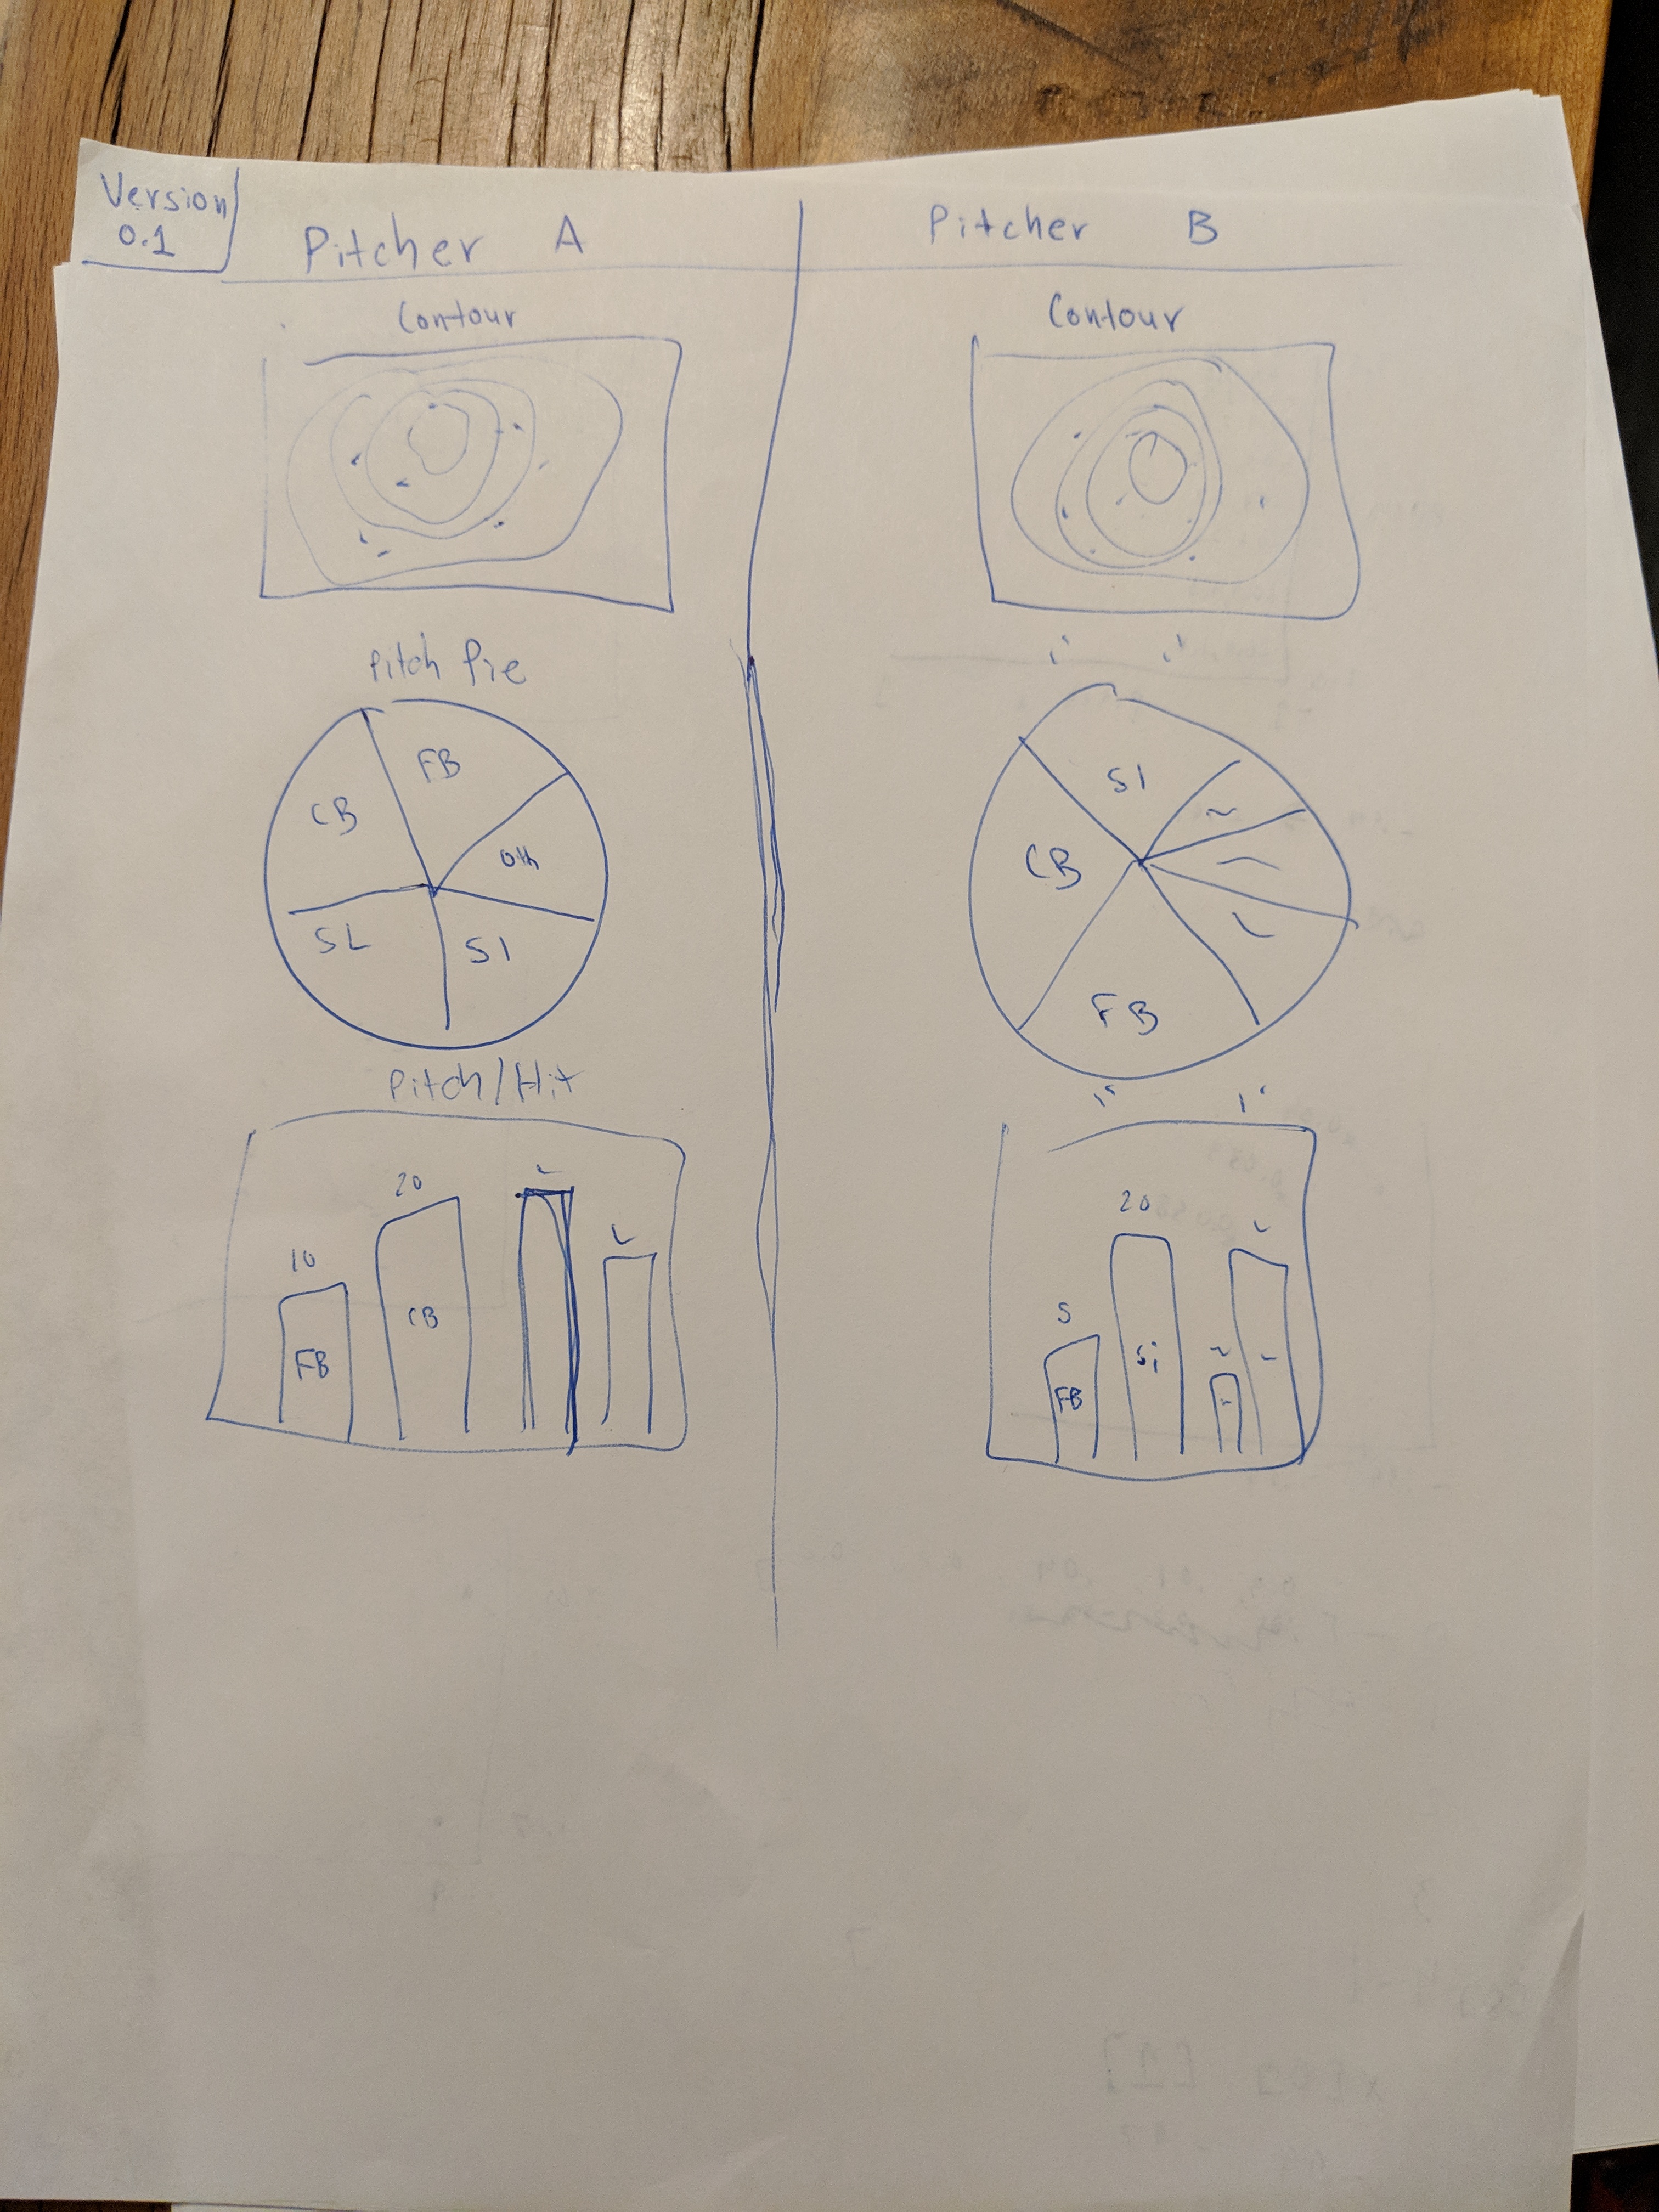 Version
0.1
Pitcher A
Contour
Pitch Pie
FB
CB
Oth
SL
SI
Pitch/Hit
20
10
CB
FB
Pitcher B
Contour
SI
CB
FB
20
5
Si
FB